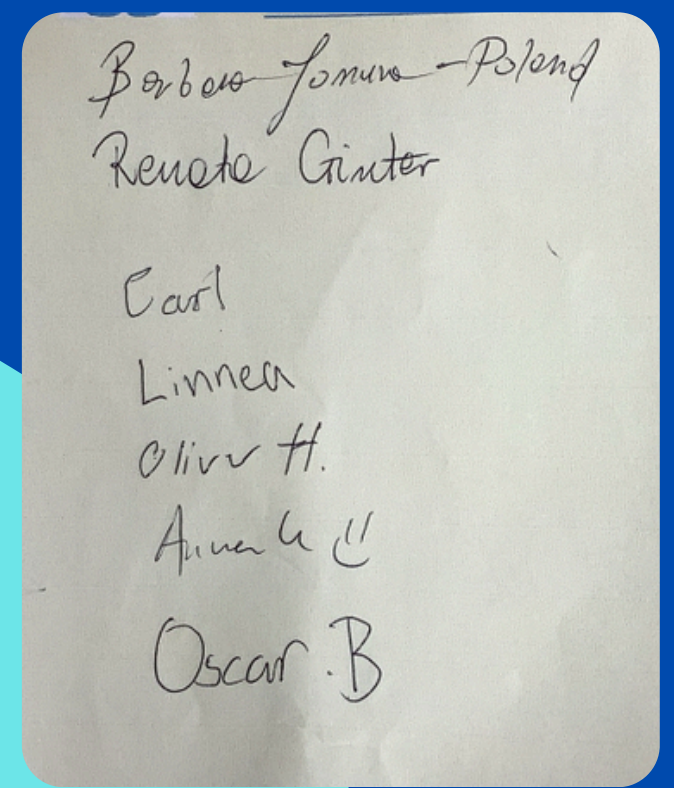 Barbara – Poland
Renata Ginter
Carl
Linnea
Oliver H.
Anna
Oscar.B